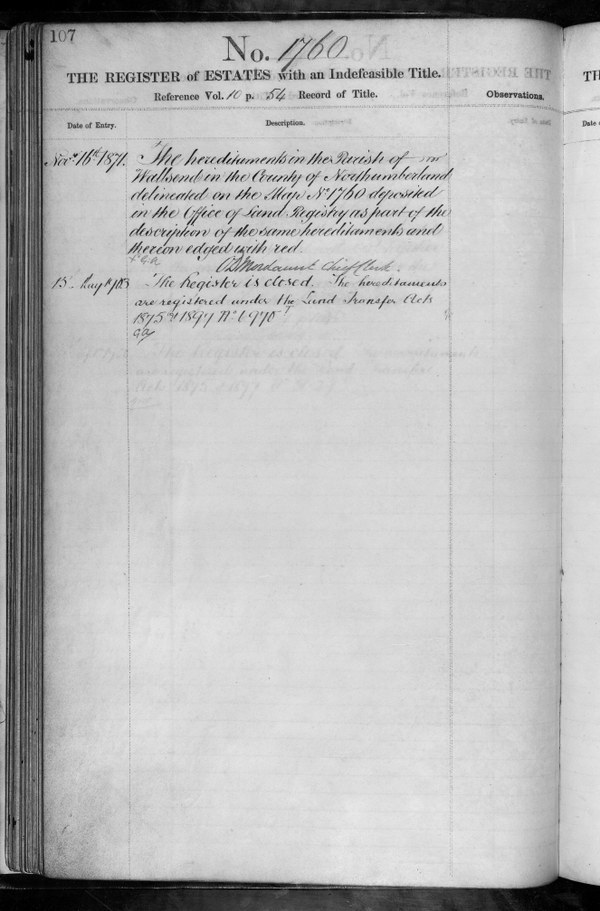 107
No. 1760
THE REGISTER of ESTATES with an Indefeasible Title.
Reference Vol. 10 p. 54 Record of Title.
Observations.
Date of Entry.
Description.
Novr 16th 1871.
The hereditaments in the Parish of
Wallsend in the County of Northumberland
delineated on the Map No 1760 deposited
in the Office of Land Registry as part of the
description of the same hereditaments and
thereon edged with red.
Mordaunt Chief Clerk.
15
The Register is closed. The hereditaments
are registered under the Land Transfer Acts
1875 & 1897 No